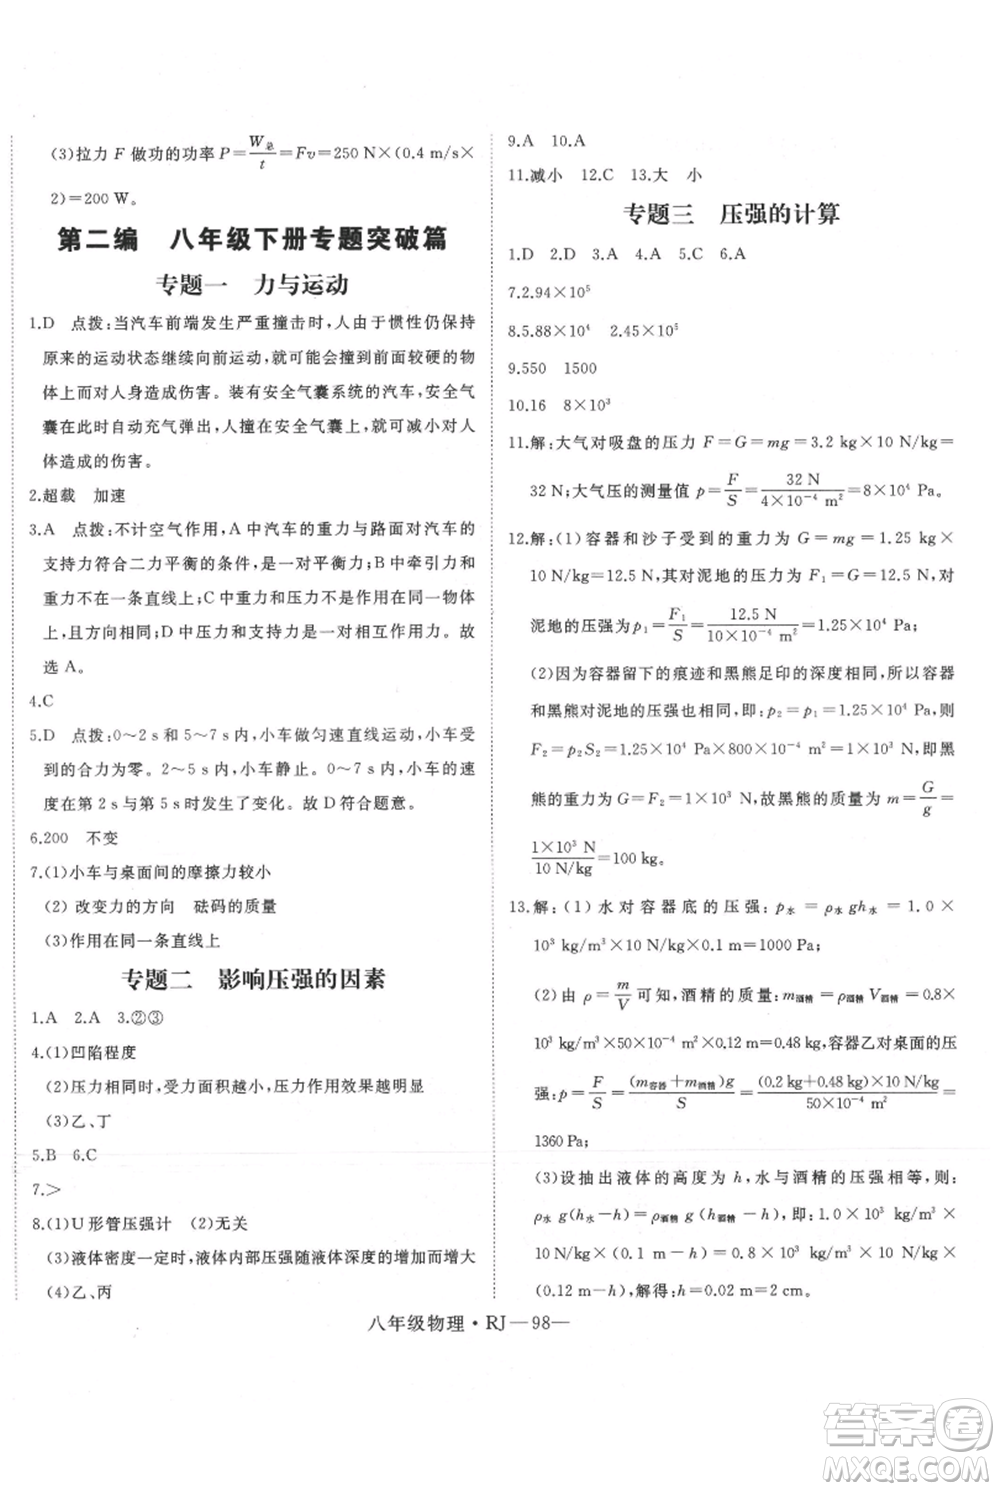 (3)拉力 F 做功的功率 P=W总/t=Fv=250 N×(0.4 m/s×
2)=200 W。
第二编 八年级下册专题突破篇
专题一 力与运动
1.D 点拨:当汽车前端发生严重撞击时,人由于惯性仍保持
原来的运动状态继续向前运动,就可能会撞到前面较硬的物
体上而对人身造成伤害。装有安全气囊系统的汽车,安全气
囊在此时自动充气弹出,人撞在安全气囊上,就可减小对人
体造成的伤害。
2.超载 加速
3.A 点拨:不计空气作用,A 中汽车的重力与路面对汽车的
支持力符合二力平衡的条件,故 A 符合;B 中牵引力和
重力不在一条直线上;C 中重力和压力不是作用在同一物体
上,且方向相同;D 中压力和支持力是一对相互作用力。故
选 A。
4.C
5.D 点拨:0～2 s 和 5～7 s,小车做匀速直线运动,小车所
受的合力为零。2～5 s,小车静止。由图可知,小车的速
度在第 2 s 与第 5 s时发生了变化。故 D符合题意。
6.200 不变
7.(1)小车与桌面间的摩擦力较小
(2) 改变力的方向 砝码的质量
(3)作用在同一条直线上
专题二 影响压强的因素
1.A 2.A 3.②③
4.(1)凹陷程度
(2)压力相同时,受力面积越小,压力作用效果越明显
(3)乙、丁
5.B 6.C
7.>
8.(1)U 形管压强计 (2)无关
(3)液体密度一定时,液体内部压强随液体深度的增加而增大
(4)乙、丙
9.A 10.A
11.减小 12.C 13.大 小
专题三 压强的计算
1.D 2.D 3.A 4.A 5.C 6.A
7.2.94×10⁵
8.5.88×10⁴ 2.45×10⁵
9.550 1500
10.16 8×10³
11.解:大气对吸盘的压力 F=G=mg=3.2 kg×10 N/kg=
32 N;大气压的测量值 p=F/S=32 N/(4×10⁻⁴ m²)=8×10⁴ Pa。
12.解:(1)容器和沙子受到的重力为 G=mg=1.25 kg×
10 N/kg=12.5 N,其对泥地的压力为 F₁=G=12.5 N,
泥地的压强为p₁=F₁/S=12.5 N/(10×10⁻⁴ m²)=1.25×10⁴ Pa;
(2)因为容器留下的痕迹与黑熊足印的深度相同,所以容器
和黑熊对泥地的压强相同,即:p₂=p₁=1.25×10⁴ Pa,则
F₂=p₂S₂=1.25×10⁴ Pa×800×10⁻⁴ m²=1×10³ N,即黑
熊的重力为 G=F₂=1×10³ N,故黑熊的质量为 m=G/g=
1×10³ N/10 N/kg=100 kg。
13.解:(1)水对容器底的压强:p水=ρ水gh水=1.0×
10³ kg/m³×10 N/kg×0.1 m=1000 Pa;
(2)由 ρ=m/V可知,酒精的质量:m酒精=ρ酒精V酒精=0.8×
10³ kg/m³×50×10⁻⁴ m²×0.12 m=0.48 kg,容器乙对桌面的压
强:p=F/S=(m容器+m酒精)g/S=(0.2 kg+0.48 kg)×10 N/kg/(50×10⁻⁴ m²)=
1360 Pa;
(3)设抽出液体的高度为 h,水与酒精的压强相等,则:
ρ水 g(h水−h)=ρ酒精 g(h酒精−h),即:1.0×10³ kg/m³×
10 N/kg×(0.1 m−h)=0.8×10³ kg/m³×10 N/kg×
(0.12 m−h),解得:h=0.02 m=2 cm。
八年级物理·RJ—98—
答案圈
MXQE.COM